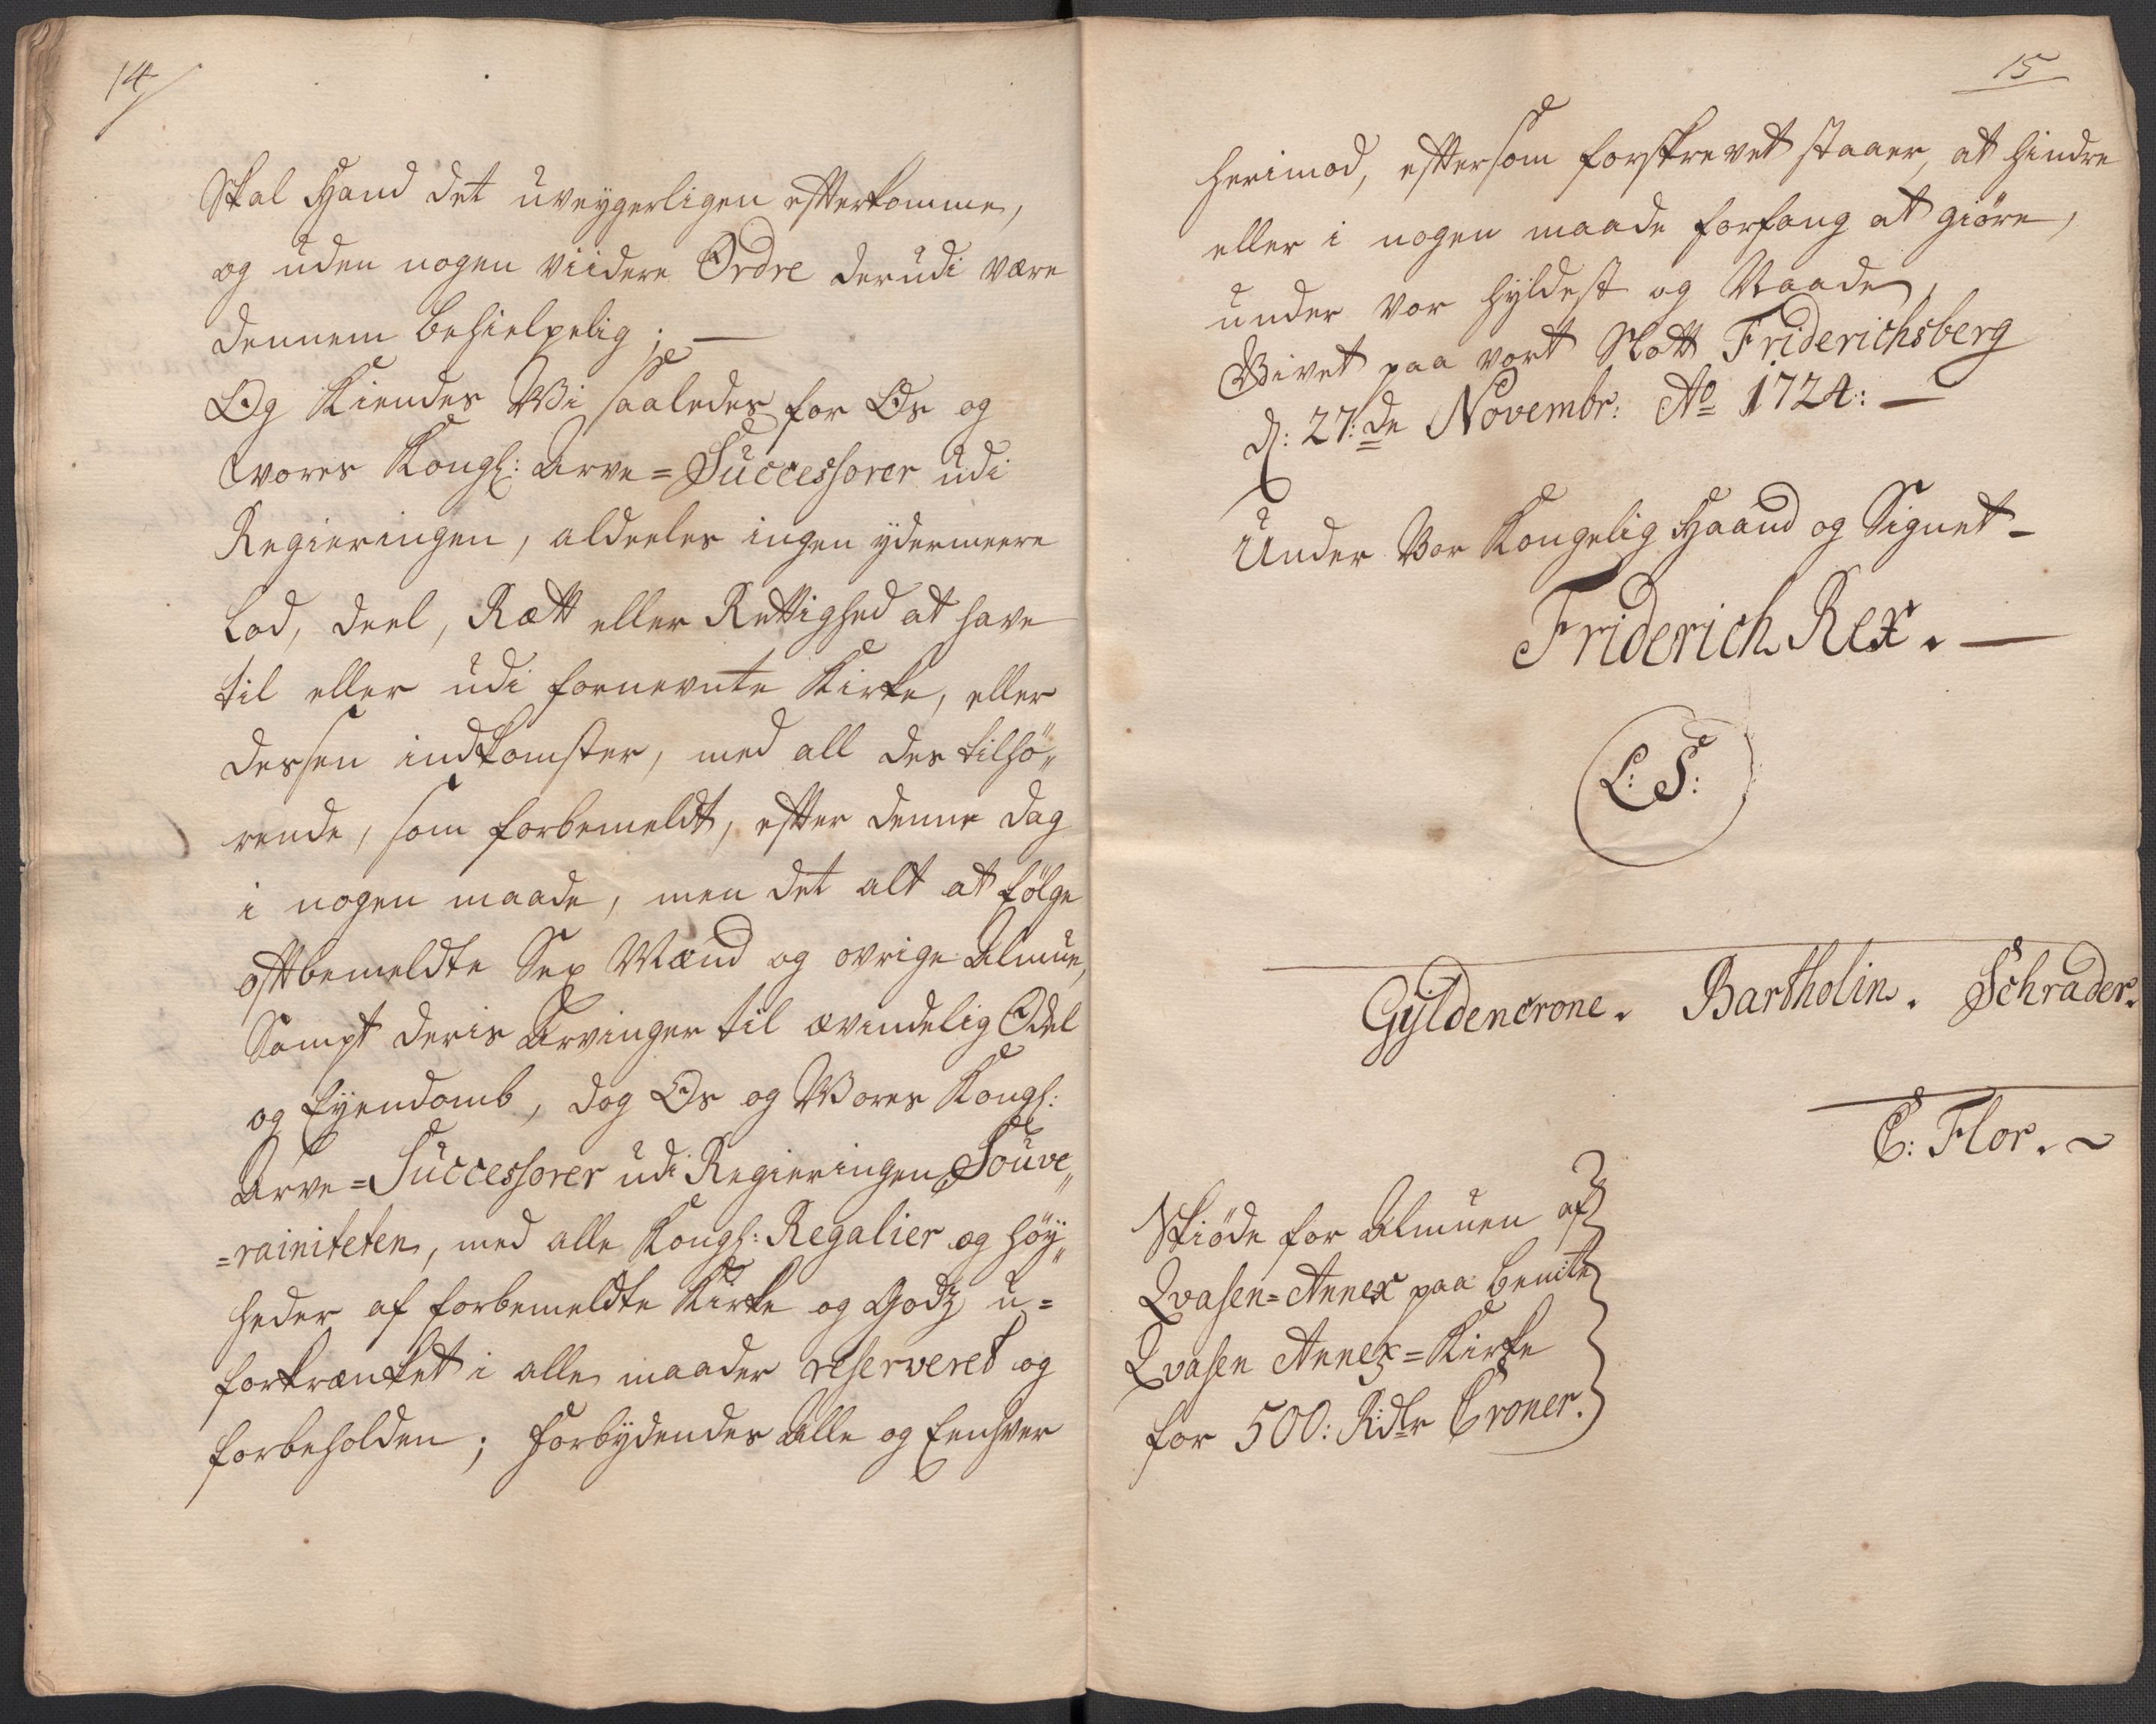 14
Skal Hand det uveygerligen efterkomme,
og uden nogen viidere Ordre derudi være
dennem behielpelig; —
Og Kiendes Wi saaledes for Os og
wores Kongl: Arve=Successorer udi
Regieringen, aldeeles ingen ydermeere
Lod, deel, Rætt eller Rettighed at have
til eller udi fornevnte Kirke, eller
dessen indkomster, med all des tilhö„
rende, som forbemeldt, efter denne dag
i nogen maade, men det alt at fölge
oftbemeldte Sex Mænd og ovrige Almue,
Sampt deris Arvinger til ævindelig Odel
og Eyendomb, dog Os og Wores Kongl:
Arve=Successorer udi Regieringen Souve„
=rainiteten, med alle Kongl: Regalier og höy„
heder af forbemeldte Kirke og Godz u=
forkrænket i alle maader reserveret og
forbeholden; forbydendes Alle og Eenhver
15
herimod, eftersom forskrevet staaer, at hindre
eller i nogen maade forfang at giöre,
under vor hyldest og Naade,
Givet paa vort Slott Friderichsberg
d: 27:de Novembr: Ao 1724: —
Under Vor Kongelig Haand og Signet –
Friderich Rex. —
L: S:
Gyldencrone. Bartholin. Schrader.
C: Flor. ~
Skiöde for Almuen af
Qvasen=Annex paa bemte
Qvasen Annex=Kirke
for 500: Rdlr Croner.